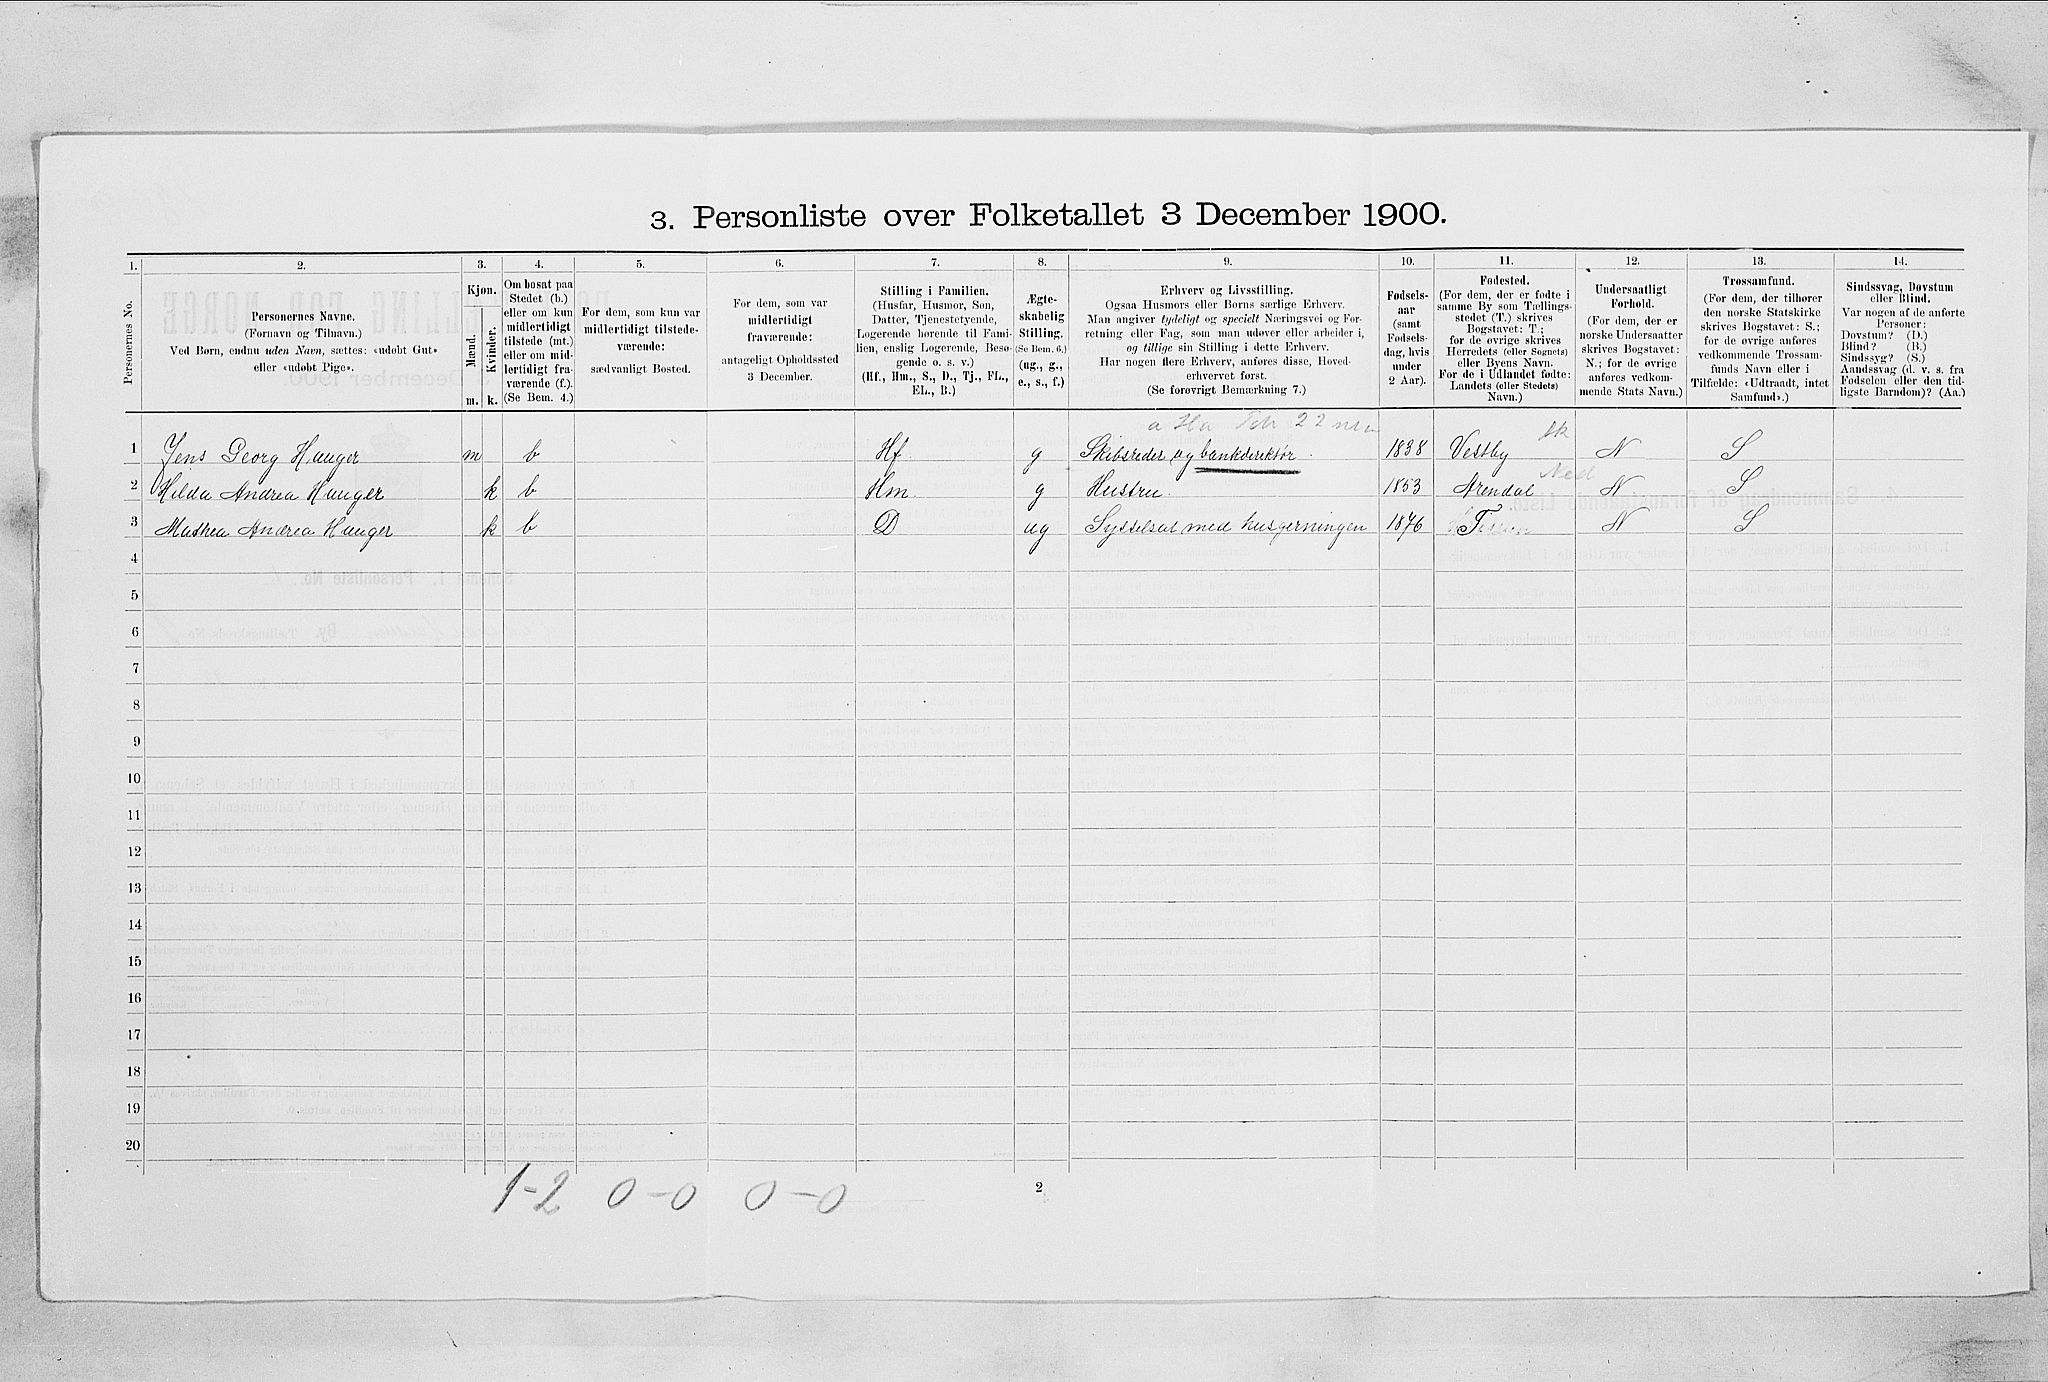 3. Personliste over Folketallet 3 December 1900.
1. 2. 3. 4. 5. 6. 7. 8. 9. 10. 11. 12. 13. 14.
Personernes No.
Personernes Navne.
(Fornavn og Tilnavn.)
Ved Børn, endnu uden Navn, sættes: «udøbt Gut»
eller «udøbt Pige».
Kjøn.
Mænd.
Kvinder.
m. k.
Om bosat paa
Stedet (b.)
eller om kun
midlertidigt
tilstede (mt.)
eller om mid-
lertidigt fra-
værende (f.).
(Se Bem. 4.)
For dem, som kun var
midlertidigt tilstede-
værende:
sædvanligt Bosted.
For dem, som var
midlertidigt
fraværende:
antageligt Opholdssted
3 December.
Stilling i Familien.
(Husfar, Husmor, Søn,
Datter, Tjenestetyende,
Logerende hørende til Fami-
lien, enslig Logerende, Besø-
gende o. s. v.)
(Hf., Hm., S., D., Tj., FL.,
EL., B.)
Ægte-
skabelig
Stilling.
(Se Bem. 6.)
(ug., g.,
e., s., f.)
Erhverv og Livsstilling.
Ogsaa Husmors eller Børns særlige Erhverv.
Man angiver tydeligt og specielt Næringsvei og For-
retning eller Fag, som man udøver eller arbeider i,
og tillige sin Stilling i dette Erhverv.
Har nogen flere Erhverv, anføres disse, Hoved-
erhvervet først.
(Se forøvrigt Bemærkning 7.)
Fødsels-
aar
(samt
Fødsels-
dag, hvis
under
2 Aar).
Fødested.
(For dem, der er fødte i
samme By som Tællings-
stedet (T.) skrives
Bogstavet: T.;
for de øvrige skrives
Herredets (eller Sognets)
eller Byens Navn.
For de i Udlandet fødte:
Landets (eller Stedets)
Navn.)
Undersaatligt
Forhold.
(For dem, der er
norske Undersaatter
skrives Bogstavet:
N.; for de øvrige
anføres vedkom-
mende Stats Navn.)
Trossamfund.
(For dem, der tilhører
den norske Statskirke
skrives Bogstavet: S.;
for de øvrige anføres
vedkommende Trossam-
funds Navn eller i
Tilfælde: «Udtraadt, intet
Samfund».)
Sindssvag, Døvstum
eller Blind.
Var nogen af de anførte
Personer:
Døvstum? (D.)
Blind? (B.)
Sindssyg? (S.)
Aandssvag (d. v. s. fra
Fødselen eller den tid-
ligste Barndom)? (Aa.)
1 Jens Georg Hauger m b Hf. g Skibsreder og bankdirektør. 1838 Vestby N S
2 Hilda Andrea Hauger k b Hm. g Hustru. 1853 Arendal N S
3 Mathea Andrea Hauger k b D ug Sysselsat med husgerningen 1876 T N S
4
5
6
7
8
9
10
11
12
13
14
15
16
17
18
19
20
1-2 0-0 0-0
2